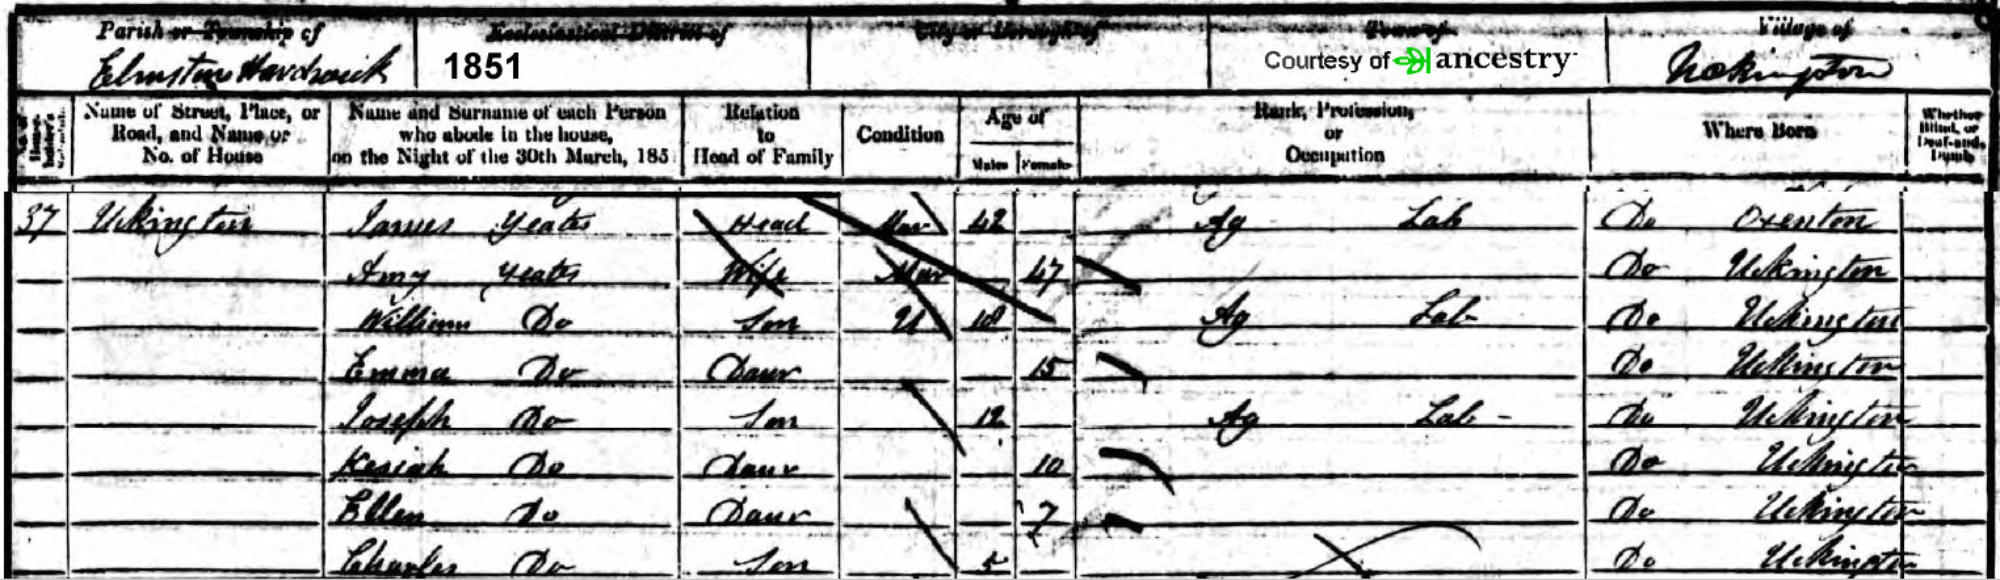 Parish or Township of
Ecclesiastical District of
City or Borough of
Town of
Village of
Elmstone Hardwick
1851
Courtesy of ancestry
Uckington
Name of Street, Place, or Road, and Name or No. of House
Name and Surname of each Person who abode in the house, on the Night of the 30th March, 185
Relation to Head of Family
Condition
Age of
Males Females
Rank, Profession, or Occupation
Where Born
Whether Blind, or Deaf-and-Dumb
37 Uckington James Yeates Head Mar 42 Ag Lab Do Oxenton
Amy Yeates Wife Mar 47 Do Uckington
William Do Son U 18 Ag Lab Do Uckington
Emma Do Daur 15 Do Uckington
Joseph Do Son 12 Ag Lab - Do Uckington
Kesiah Do Daur 10 Do Uckington
Ellen Do Daur 7 Do Uckington
Charles Do Son 5 Do Uckington